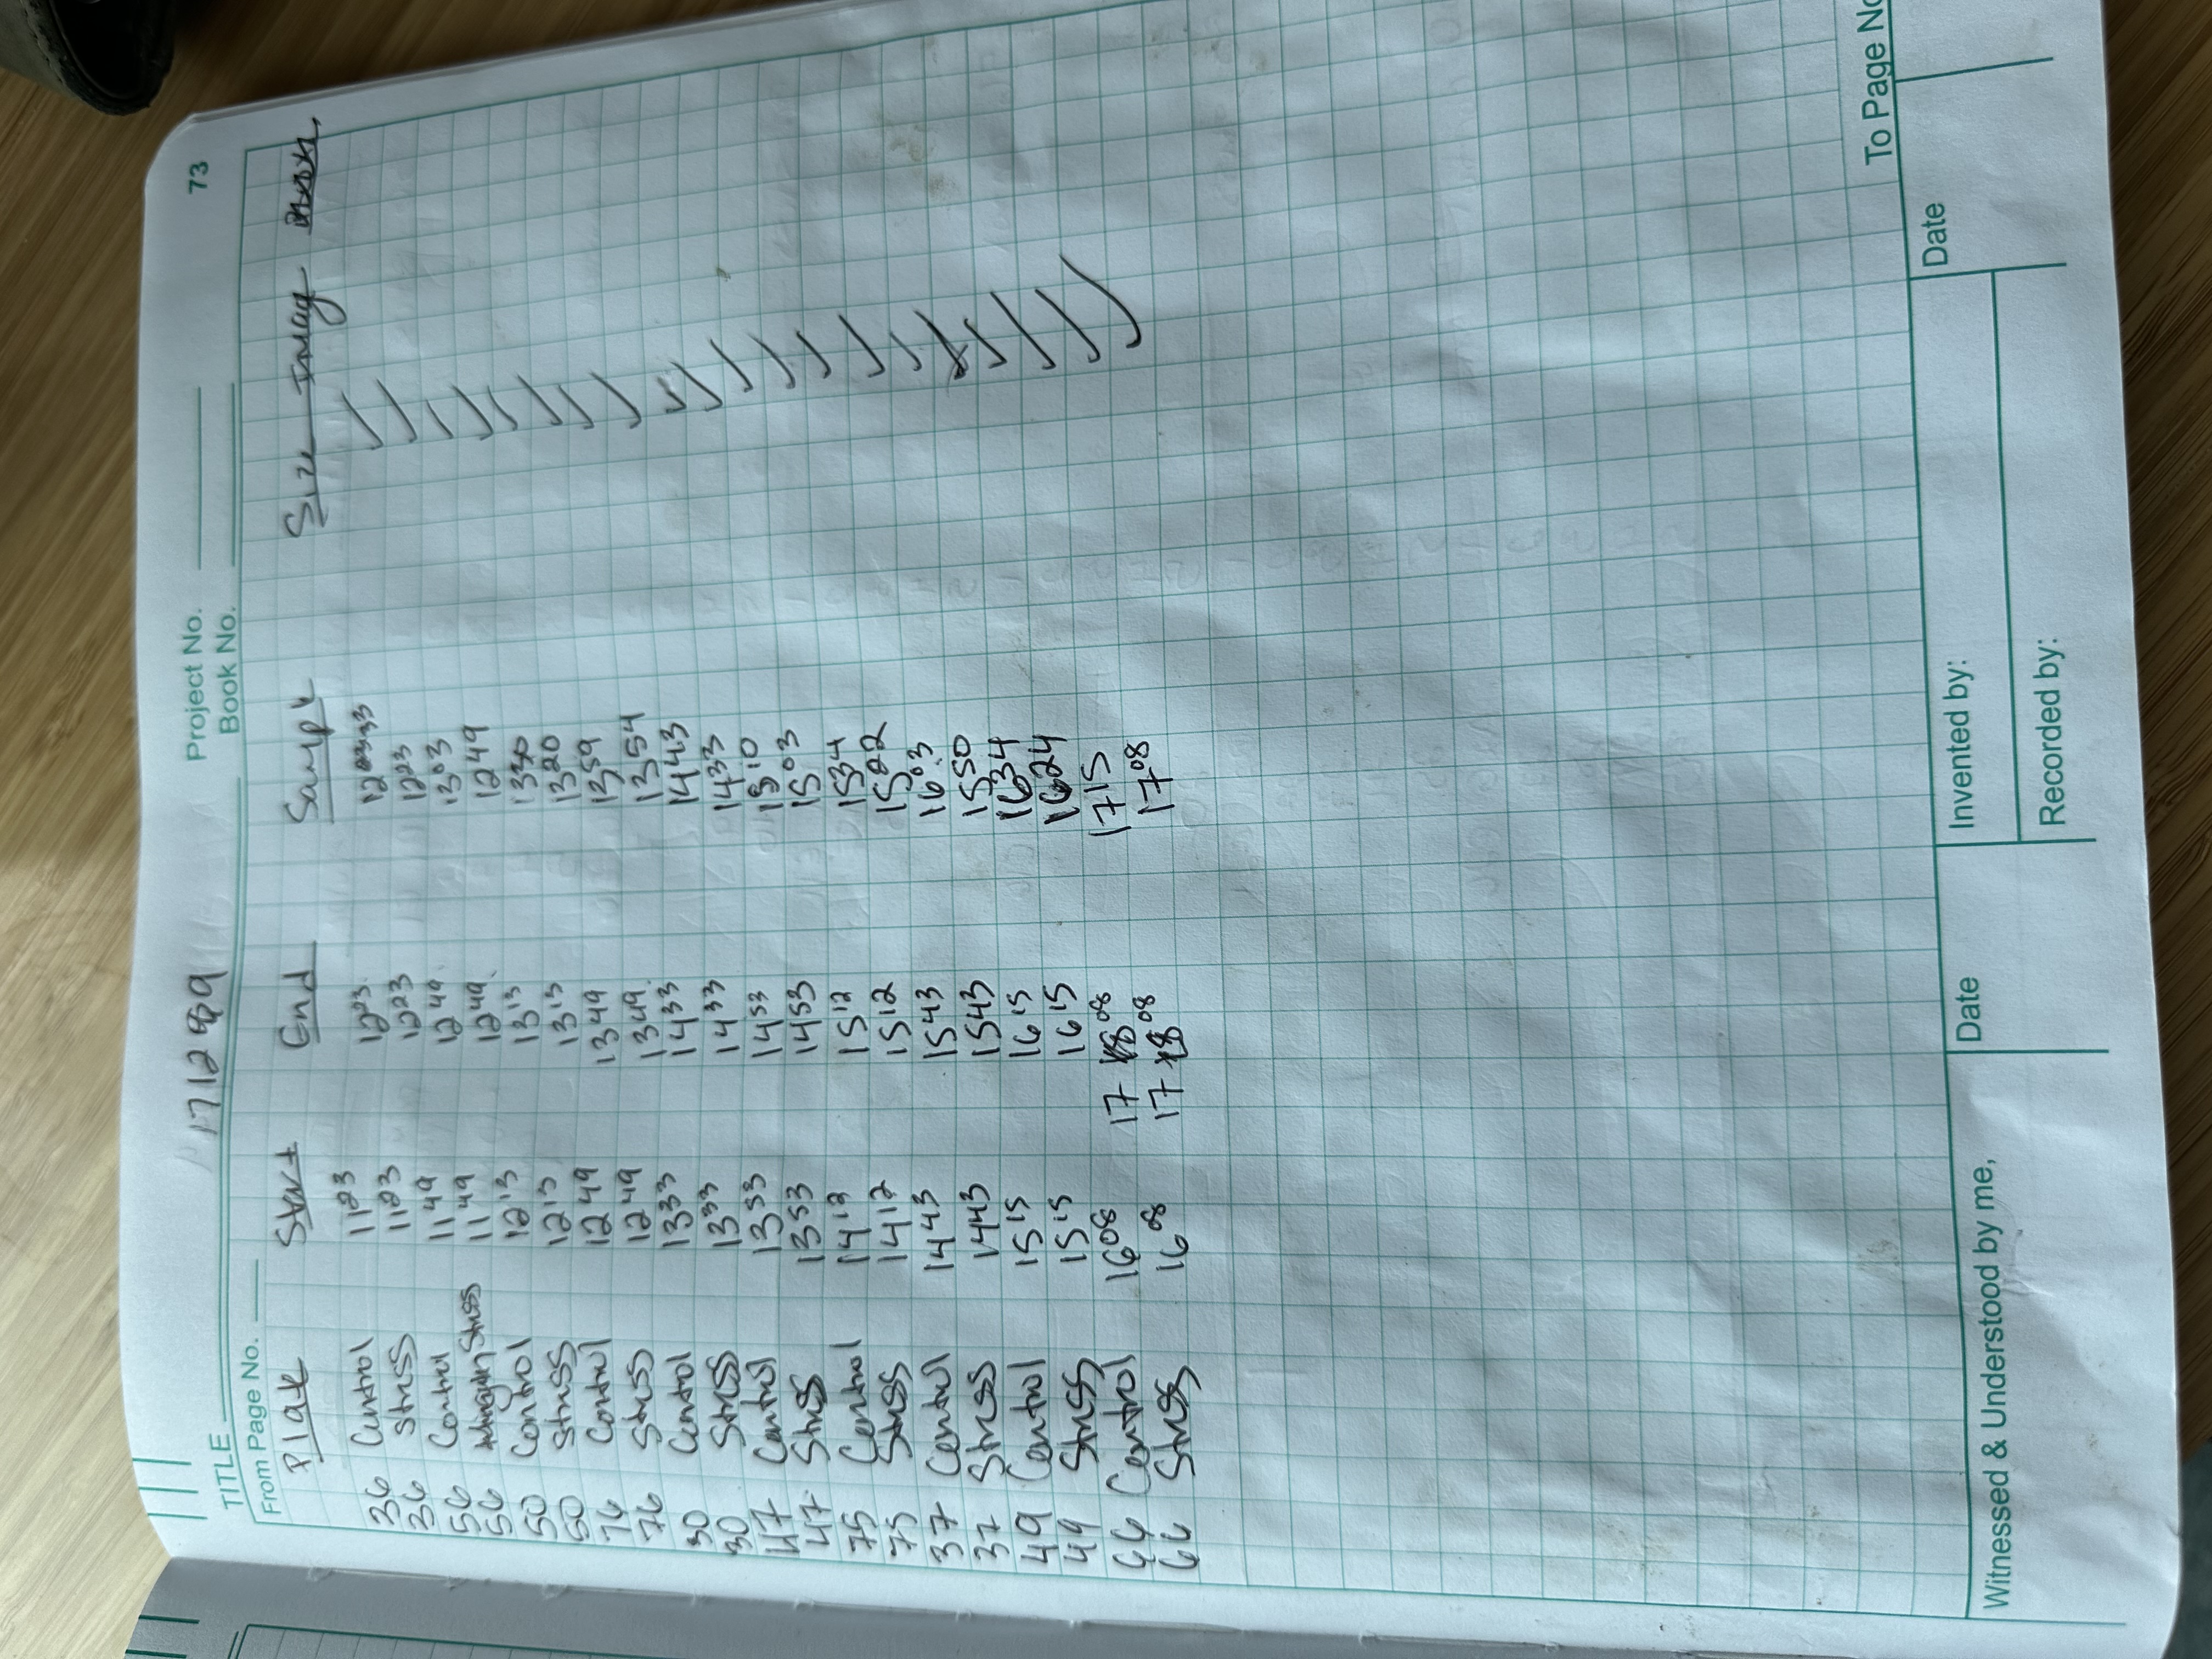 73
Project No.
Book No.
TITLE
From Page No.
Plate Start End Sample Size Imag
36 Control 1123 1223
36 Stress 1123 1223 1223
56 Control 1149 1249 1303
56 Stress 1149 1249 1249
50 Control 1213 1313
50 Stress 1213 1313 1320
76 Control 1249 1349 1359
76 Stress 1249 1349 1354
30 Control 1333 1433 1443
30 Stress 1333 1433 1433
47 Control 1353 1453 1510
47 Stress 1353 1453 1503
75 Control 1412 1512 1534
75 Stress 1412 1512 1522
37 Control 1443 1543 1603
37 Stress 1443 1543 1550
49 Control 1515 1615 1634
49 Stress 1515 1615 1624
66 Control 1608 1708 1715
66 Stress 1608 1708 1708
To Page No
Witnessed & Understood by me,
Date
Invented by:
Date
Recorded by: